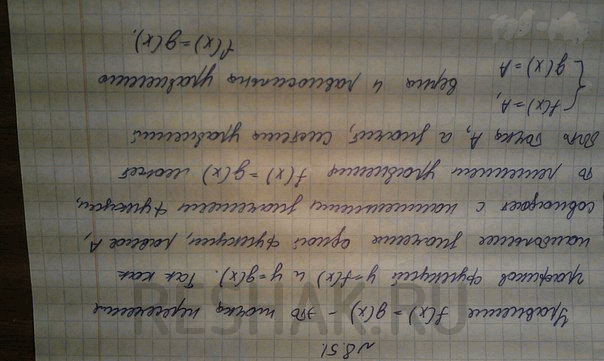 №8.51
Уравнение f(x) = g(x) – это точка пересечения
графиков функций y=f(x) и y=g(x). Так как
наибольшее значение одной функции, равное A,
совпадает с наименьшим значением функции,
то решением уравнения f(x) = g(x) может
быть точка A, а значит, система уравнений
{ f(x) = A,
g(x) = A верна и равносильна уравнению
f(x) = g(x).
RESHAK.RU